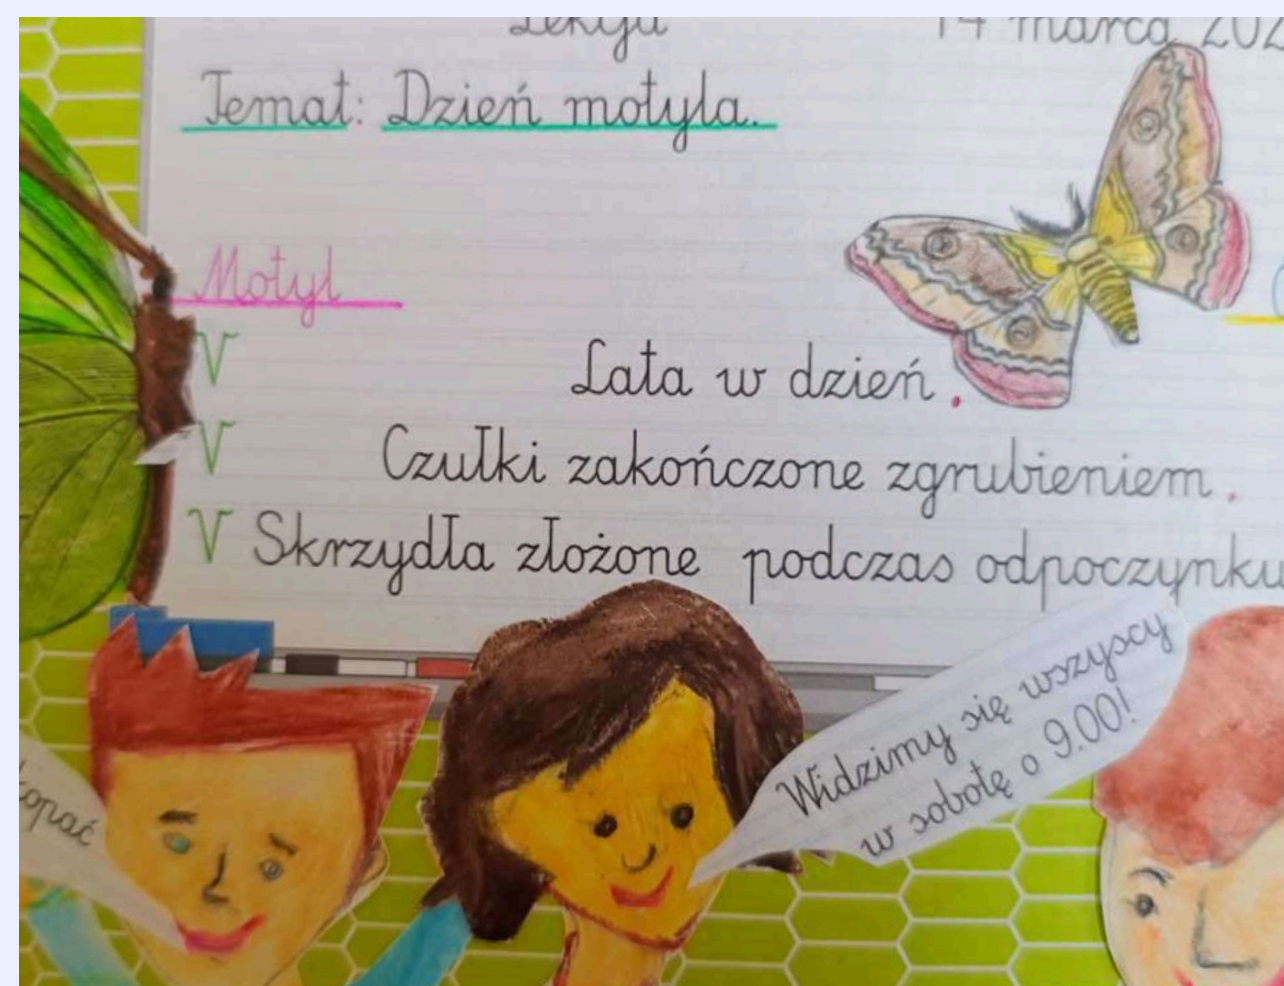 Lekcja
14 marca 202
Temat: Dzień motyla.
Motyl
V Lata w dzień.
V Czułki zakończone zgrubieniem.
V Skrzydła złożone podczas odpoczynku
Widzimy się wszyscy
w sobotę o 9.00!
kopać